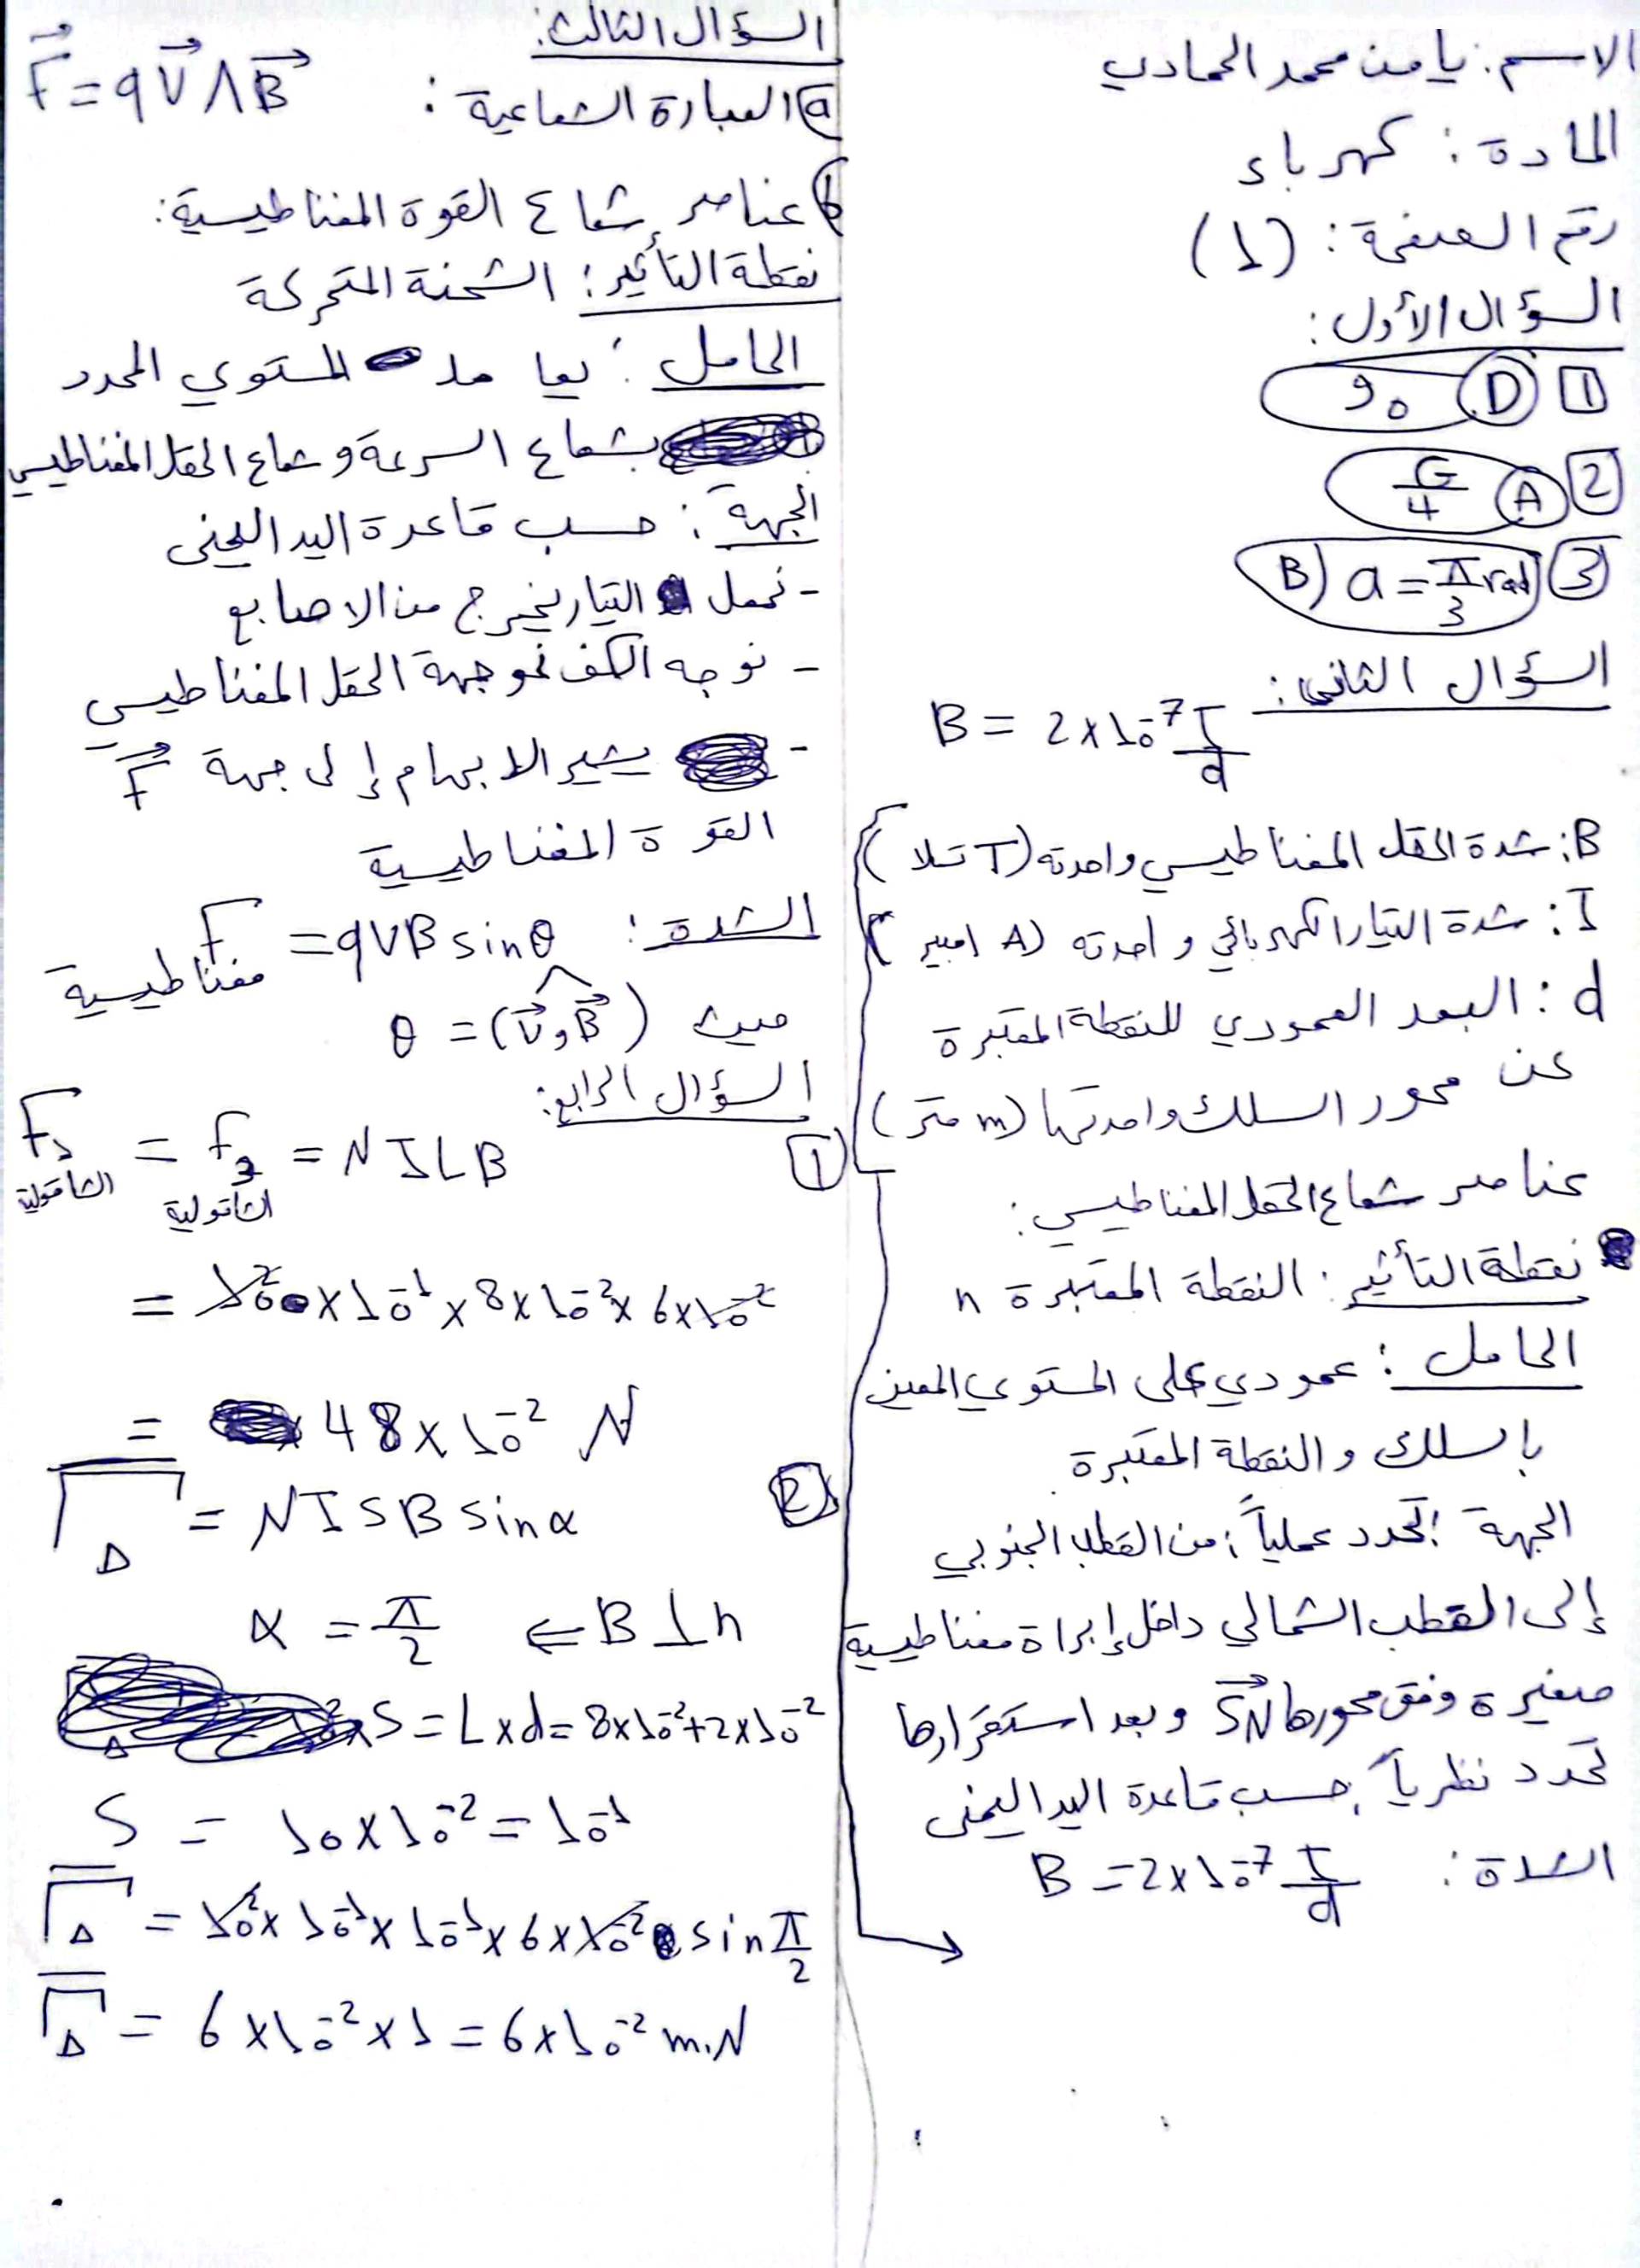 الاسم: يامن محمد الحمادي
المادة: كهرباء
رقم الصفحة: (1)
السؤال الأول:
1 D 90
2 A G/4
3 B) a = π/3 rad
السؤال الثاني:
B = 2×10⁻⁷ I/d
B: شدة الحقل المغناطيسي واحدته (T تسلا)
I: شدة التيار الكهربائي واحدته (A امبير)
d: البعد العمودي للنقطة المعتبرة
عن محور السلك واحدتها (m متر)
عناصر شعاع الحقل المغناطيسي:
نقطة التأثير: النقطة المعتبرة n
الحامل: عمودي على المستوي المعين
بالسلك والنقطة المعتبرة
الجهة: تحدد عملياً: من القطب الجنوبي
إلى القطب الشمالي داخل إبراة مغناطيسية
صغيرة وفق محورها SN→ وبعد استقرارها
تحدد نظرياً: حسب قاعدة اليد اليمنى
الشدة: B = 2×10⁻⁷ I/d
السؤال الثالث:
a العبارة الشعاعية: F→ = qV→ Λ B→
b عناصر شعاع القوة المغناطيسية:
نقطة التأثير: الشحنة المتحركة
الحامل: يعامد المستوي المحدد
بشعاع السرعة وشعاع الحقل المغناطيسي
الجهة: حسب قاعدة اليد اليمنى
- نجعل التيار يخرج من الاصابع
- نوجه الكف نحو جهة الحقل المغناطيسي
- يشير الابهام إلى جهة F→
القوة المغناطيسية
الشدة: F مغناطيسية = qVB sinθ
حيث θ = (V→, B→)
السؤال الرابع:
1 F₁ الشاقولية = F₃ الشاقولية = NILB
= 10²×10⁻¹×8×10⁻²×6×10⁻²
= 48×10⁻² N
2 Γ_Δ = NISB sinα
B⊥n ⇐ α = π/2
S = L×d = 8×10⁻²+2×10⁻²
S = 10×10⁻² = 10⁻¹
Γ_Δ = 10²×10⁻¹×10⁻¹×6×10⁻² sin π/2
Γ_Δ = 6×10⁻²×1 = 6×10⁻² m.N